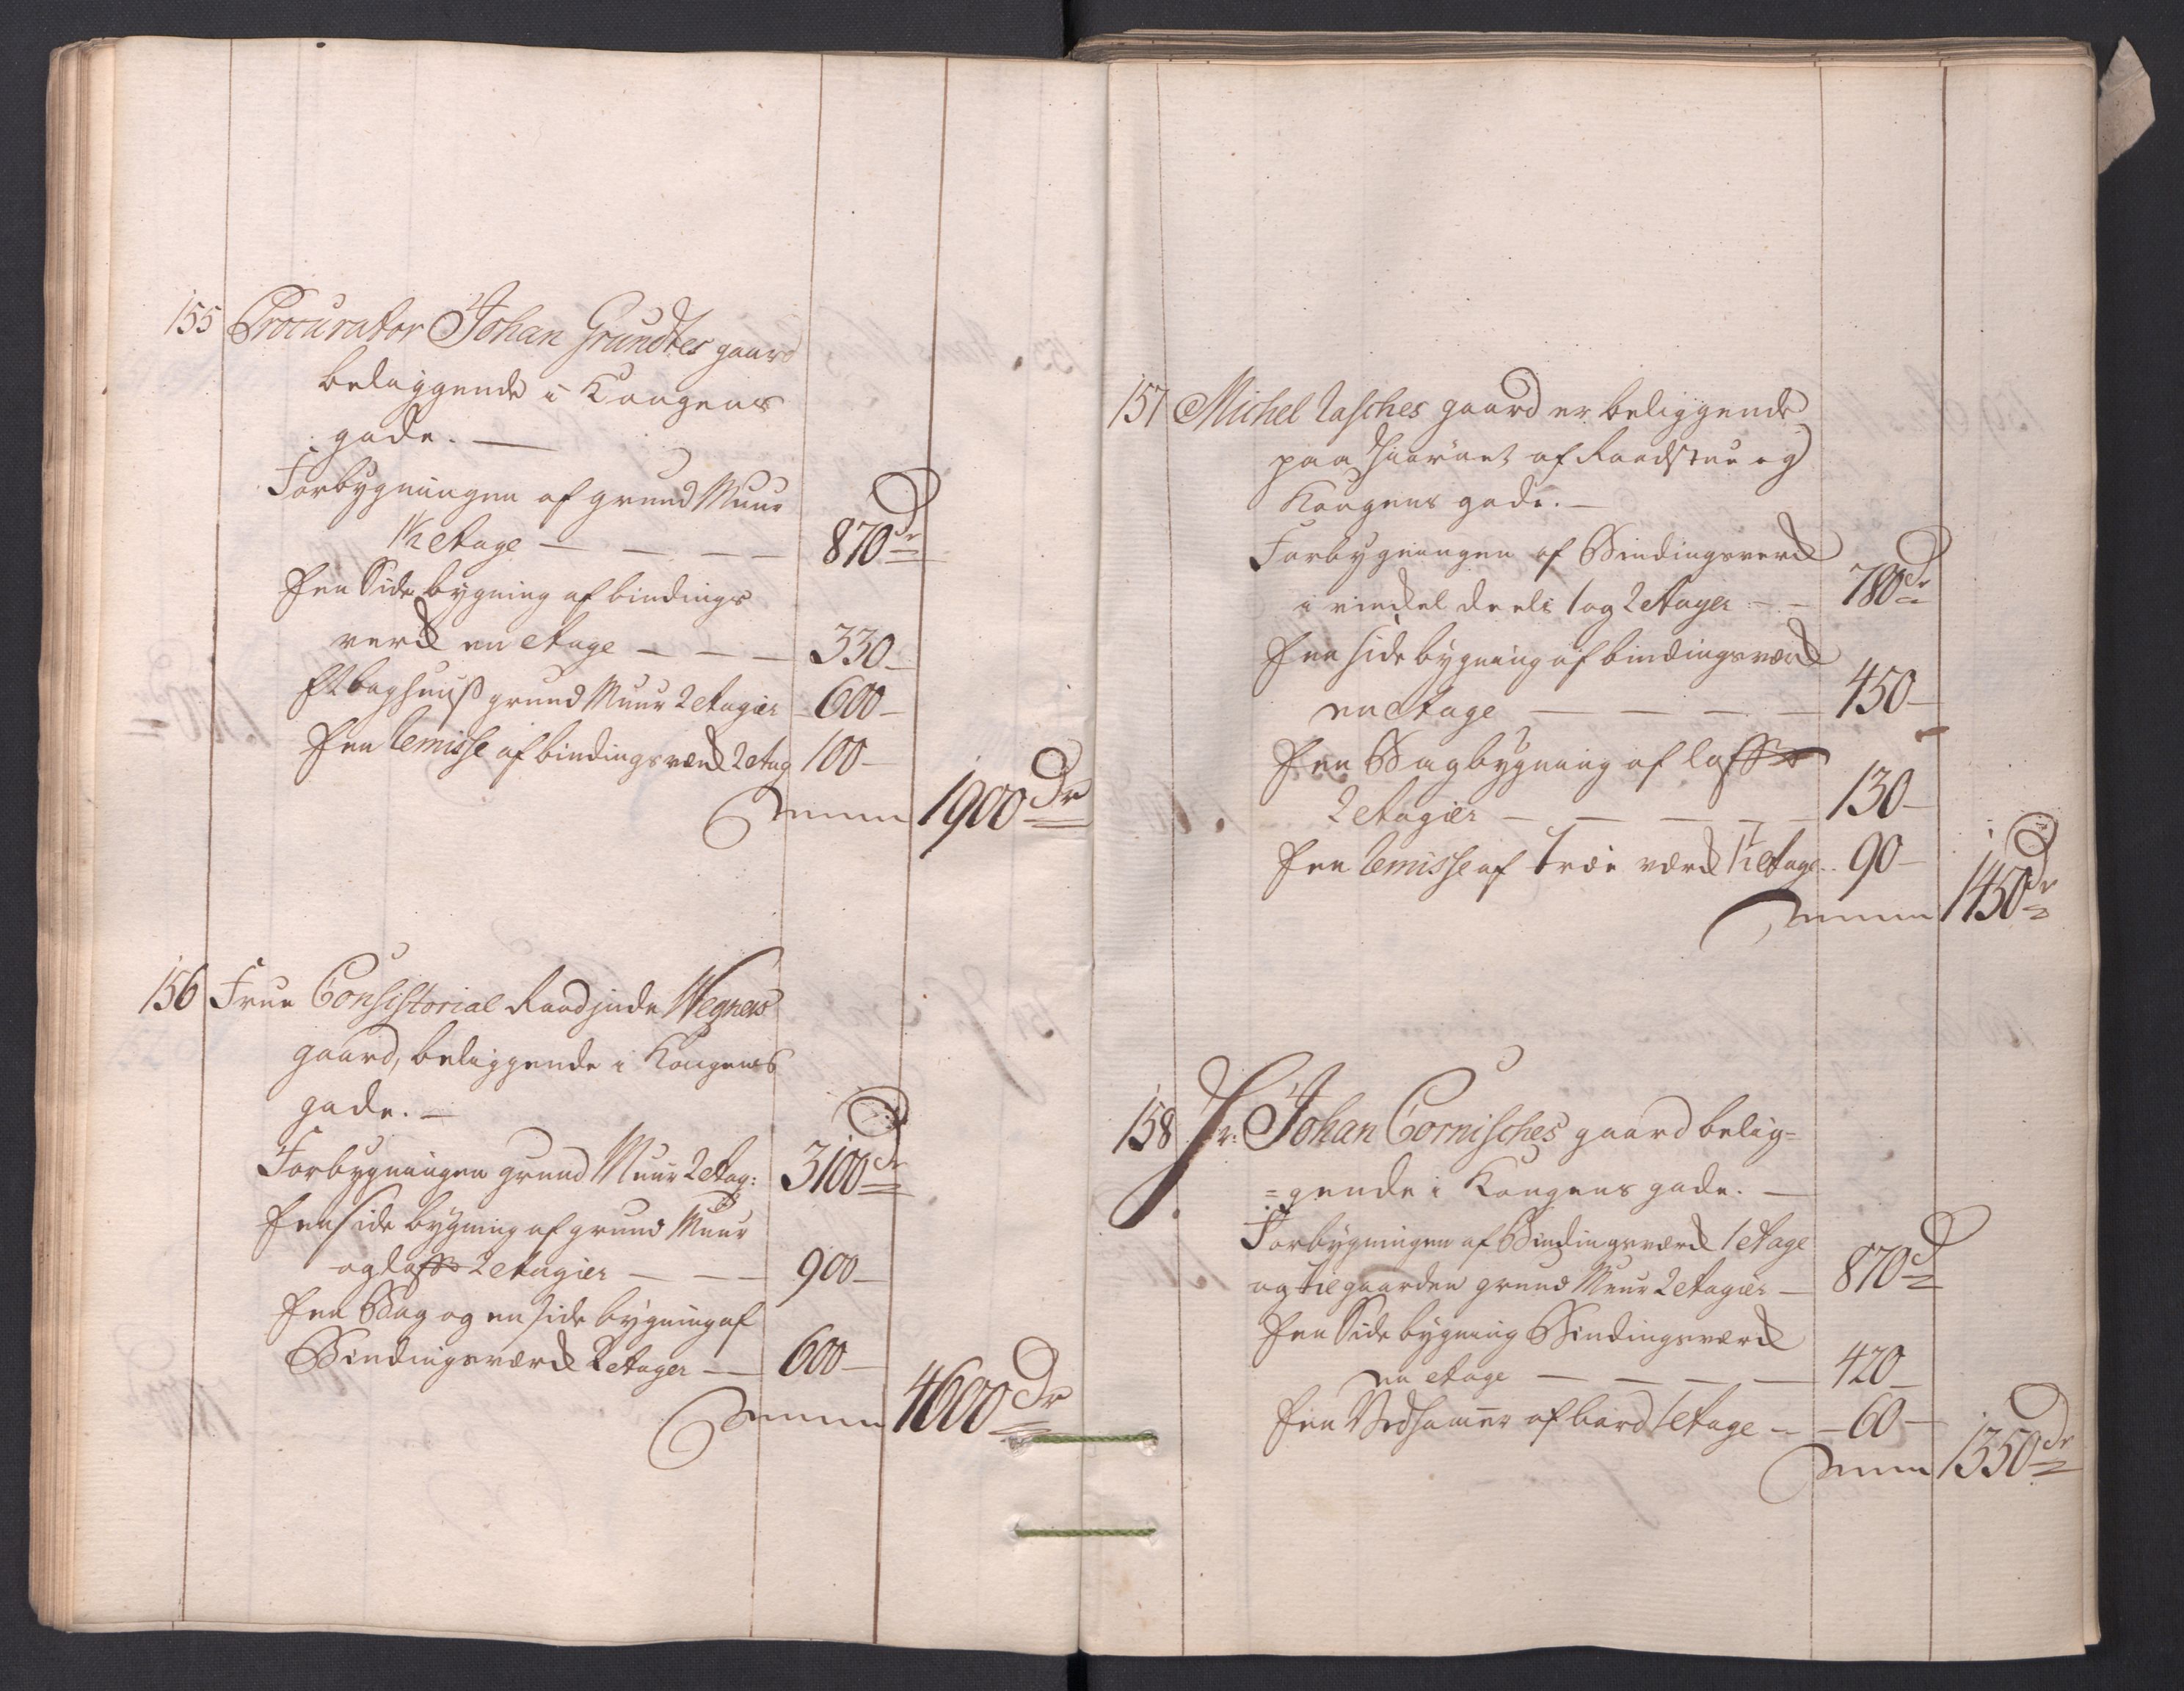 155 Procurator Johan Grundtes gaard
beliggende i Kongens
gade. —
Forbygningen af grund Muur
1½ etage — — — — 870 Dr
Een Side bygning af bindings
verck en etage — — — 330 —
Et baghuuß grund Muur 2 etagier — 600 —
Een Remisse af bindingsværck 2 etag 100 —
Summa 1900 Dr
156 Frue Consistorial Raadinde Wegners
gaard, beliggende i Kongens
gade. —
Forbygningen grund Muur 2 etag: 3100 Dr
Een side bygning af grund Muur
og 2 etagier — — — 900 —
Een Bag og en side bygning af
Bindingsværck 2 etager — 600 —
Summa 4600 Dr
157 Michel Lasches gaard er beliggende
paa Hiørnet af Raadstue og
Kongens gade. —
Forbygningen af Bindingsverck
i vinckel deels 1 og 2 etager — — 780 Dr
Een side bygning af bindingsværck
en etage — — — — 450 —
Een Bagbygning af
2 etagier — — — — — 130 —
Een Remisse af Træe værck 1½ etage — 90 —
Summa 1450 Dr
158 Hr: Johan Cornisches gaard belig=
=gende i Kongens gade. —
Forbygningen af Bindingsværck 1 etage
og til gaarden grund Muur 2 etagier — 870 Dr
Een Side bygning Bindingsværck
en etage — — — — — 420 —
Een Vedskammer af bord 1 etage — — 60 —
Summa 1350 Dr